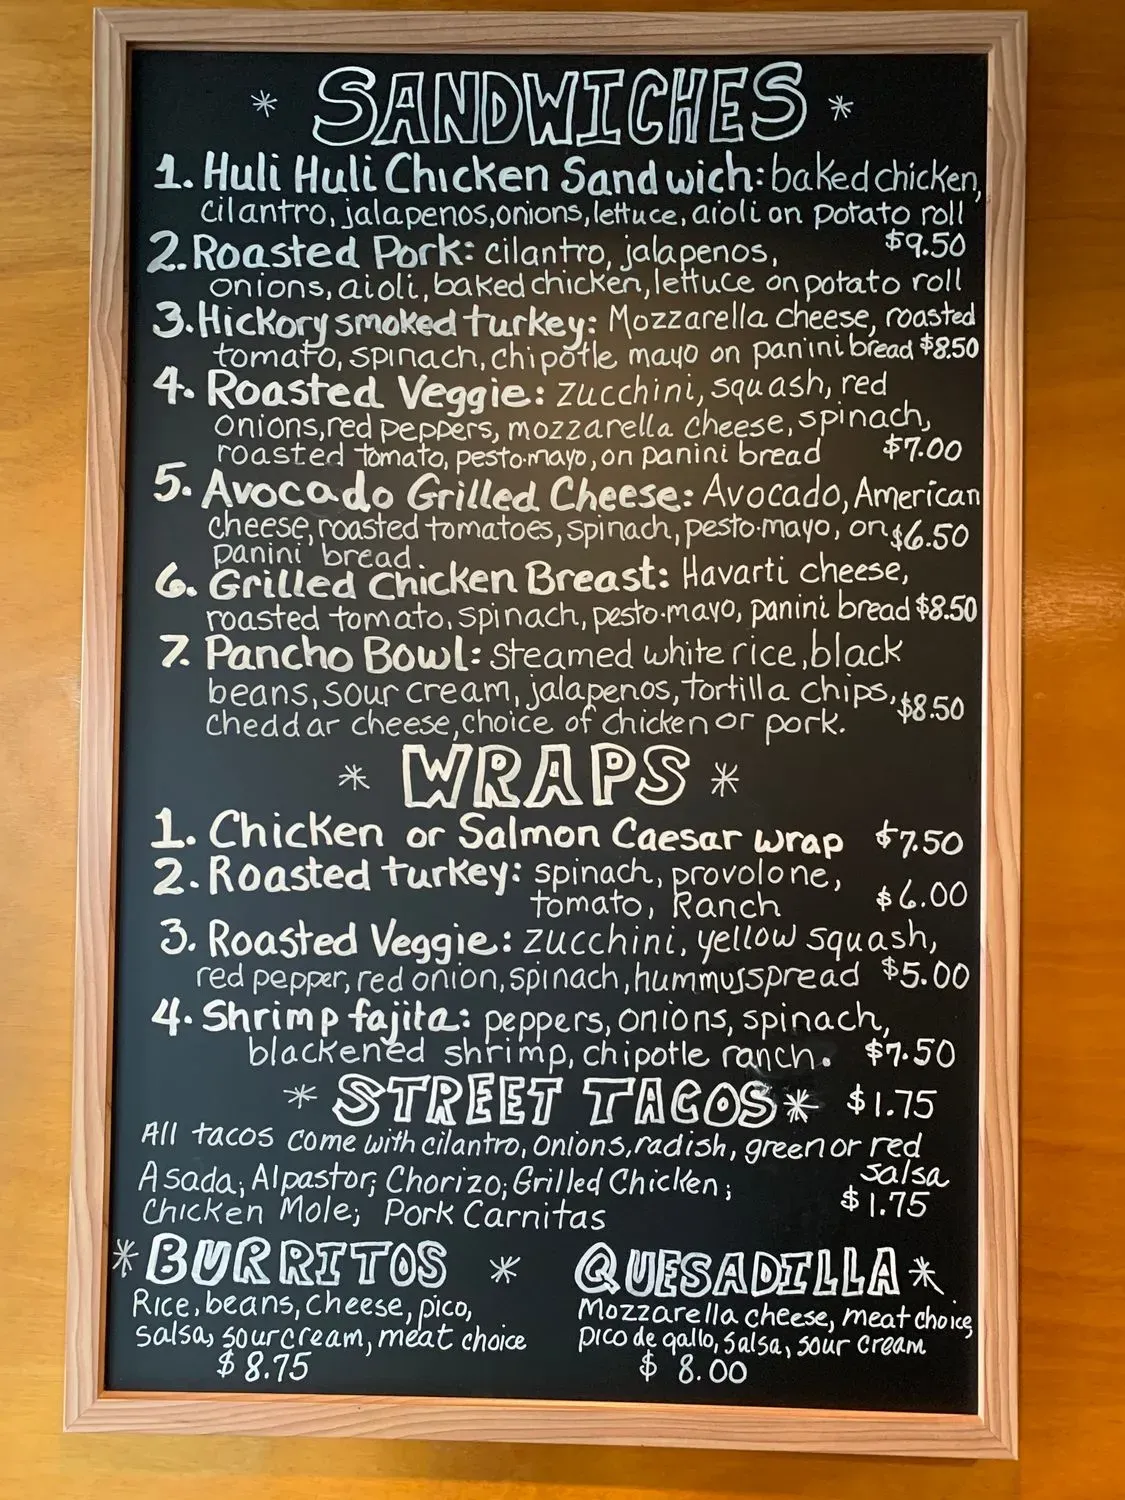 * SANDWICHES *
1. Huli Huli Chicken Sandwich: baked chicken,
cilantro, jalapenos, onions, lettuce, aioli on potato roll
$9.50
2. Roasted Pork: cilantro, jalapenos,
onions, aioli, baked chicken, lettuce on potato roll
3. Hickory smoked turkey: Mozzarella cheese, roasted
tomato, spinach, chipotle mayo on panini bread $8.50
4. Roasted Veggie: zucchini, squash, red
onions, red peppers, mozzarella cheese, spinach,
roasted tomato, pesto·mayo, on panini bread $7.00
5. Avocado Grilled Cheese: Avocado, American
cheese, roasted tomatoes, spinach, pesto·mayo, on $6.50
panini bread.
6. Grilled Chicken Breast: Havarti cheese,
roasted tomato, spinach, pesto·mayo, panini bread $8.50
7. Pancho Bowl: steamed white rice, black
beans, sour cream, jalapenos, tortilla chips, $8.50
cheddar cheese, choice of chicken or pork.
* WRAPS *
1. Chicken or Salmon Caesar wrap $7.50
2. Roasted turkey: spinach, provolone,
tomato, Ranch $6.00
3. Roasted Veggie: zucchini, yellow squash,
red pepper, red onion, spinach, hummus spread $5.00
4. Shrimp fajita: peppers, onions, spinach,
blackened shrimp, chipotle ranch. $7.50
* STREET TACOS * $1.75
All tacos come with cilantro, onions, radish, green or red
salsa
Asada; Alpastor; Chorizo; Grilled Chicken;
$1.75
Chicken Mole; Pork Carnitas
* BURRITOS *
Rice, beans, cheese, pico,
salsa, sour cream, meat choice
$8.75
QUESADILLA *
Mozzarella cheese, meat choice,
pico de gallo, salsa, sour cream
$ 8.00